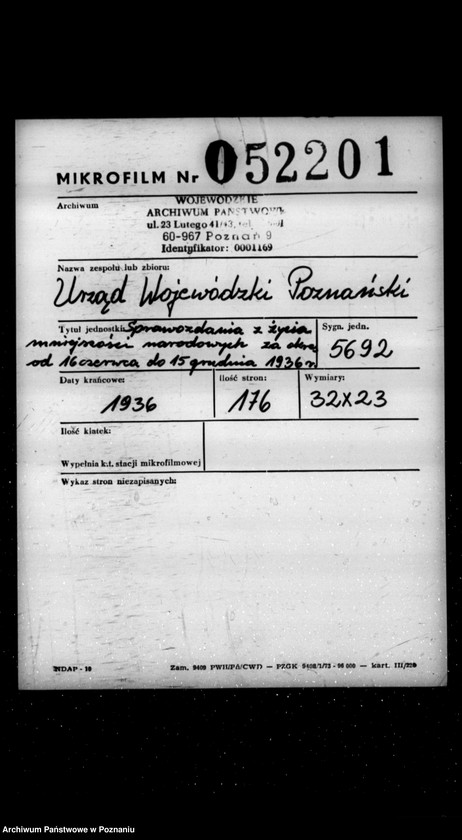 MIKROFILM Nr 052201
Archiwum
WOJEWÓDZKIE
ARCHIWUM PAŃSTWOWE
ul. 23 Lutego 41/43,
60-967 Poznań 9
Identyfikator: 0001169
Nazwa zespołu lub zbioru:
Urząd Wojewódzki Poznański
Tytuł jednostki: Sprawozdania z życia
mniejszości narodowych za okres
od 16 czerwca do 15 grudnia 1936 r.
Sygn. jedn.
5692
Daty krańcowe:
1936
Ilość stron:
176
Wymiary:
32x23
Ilość klatek:
Wypełnia k.t. stacji mikrofilmowej
Wykaz stron niezapisanych:
NDAP - 10
Zam. 9409 PWH/PG/CWD — PZGK 9408/1/73 - 96 000 — kart. III/220
Archiwum Państwowe w Poznaniu